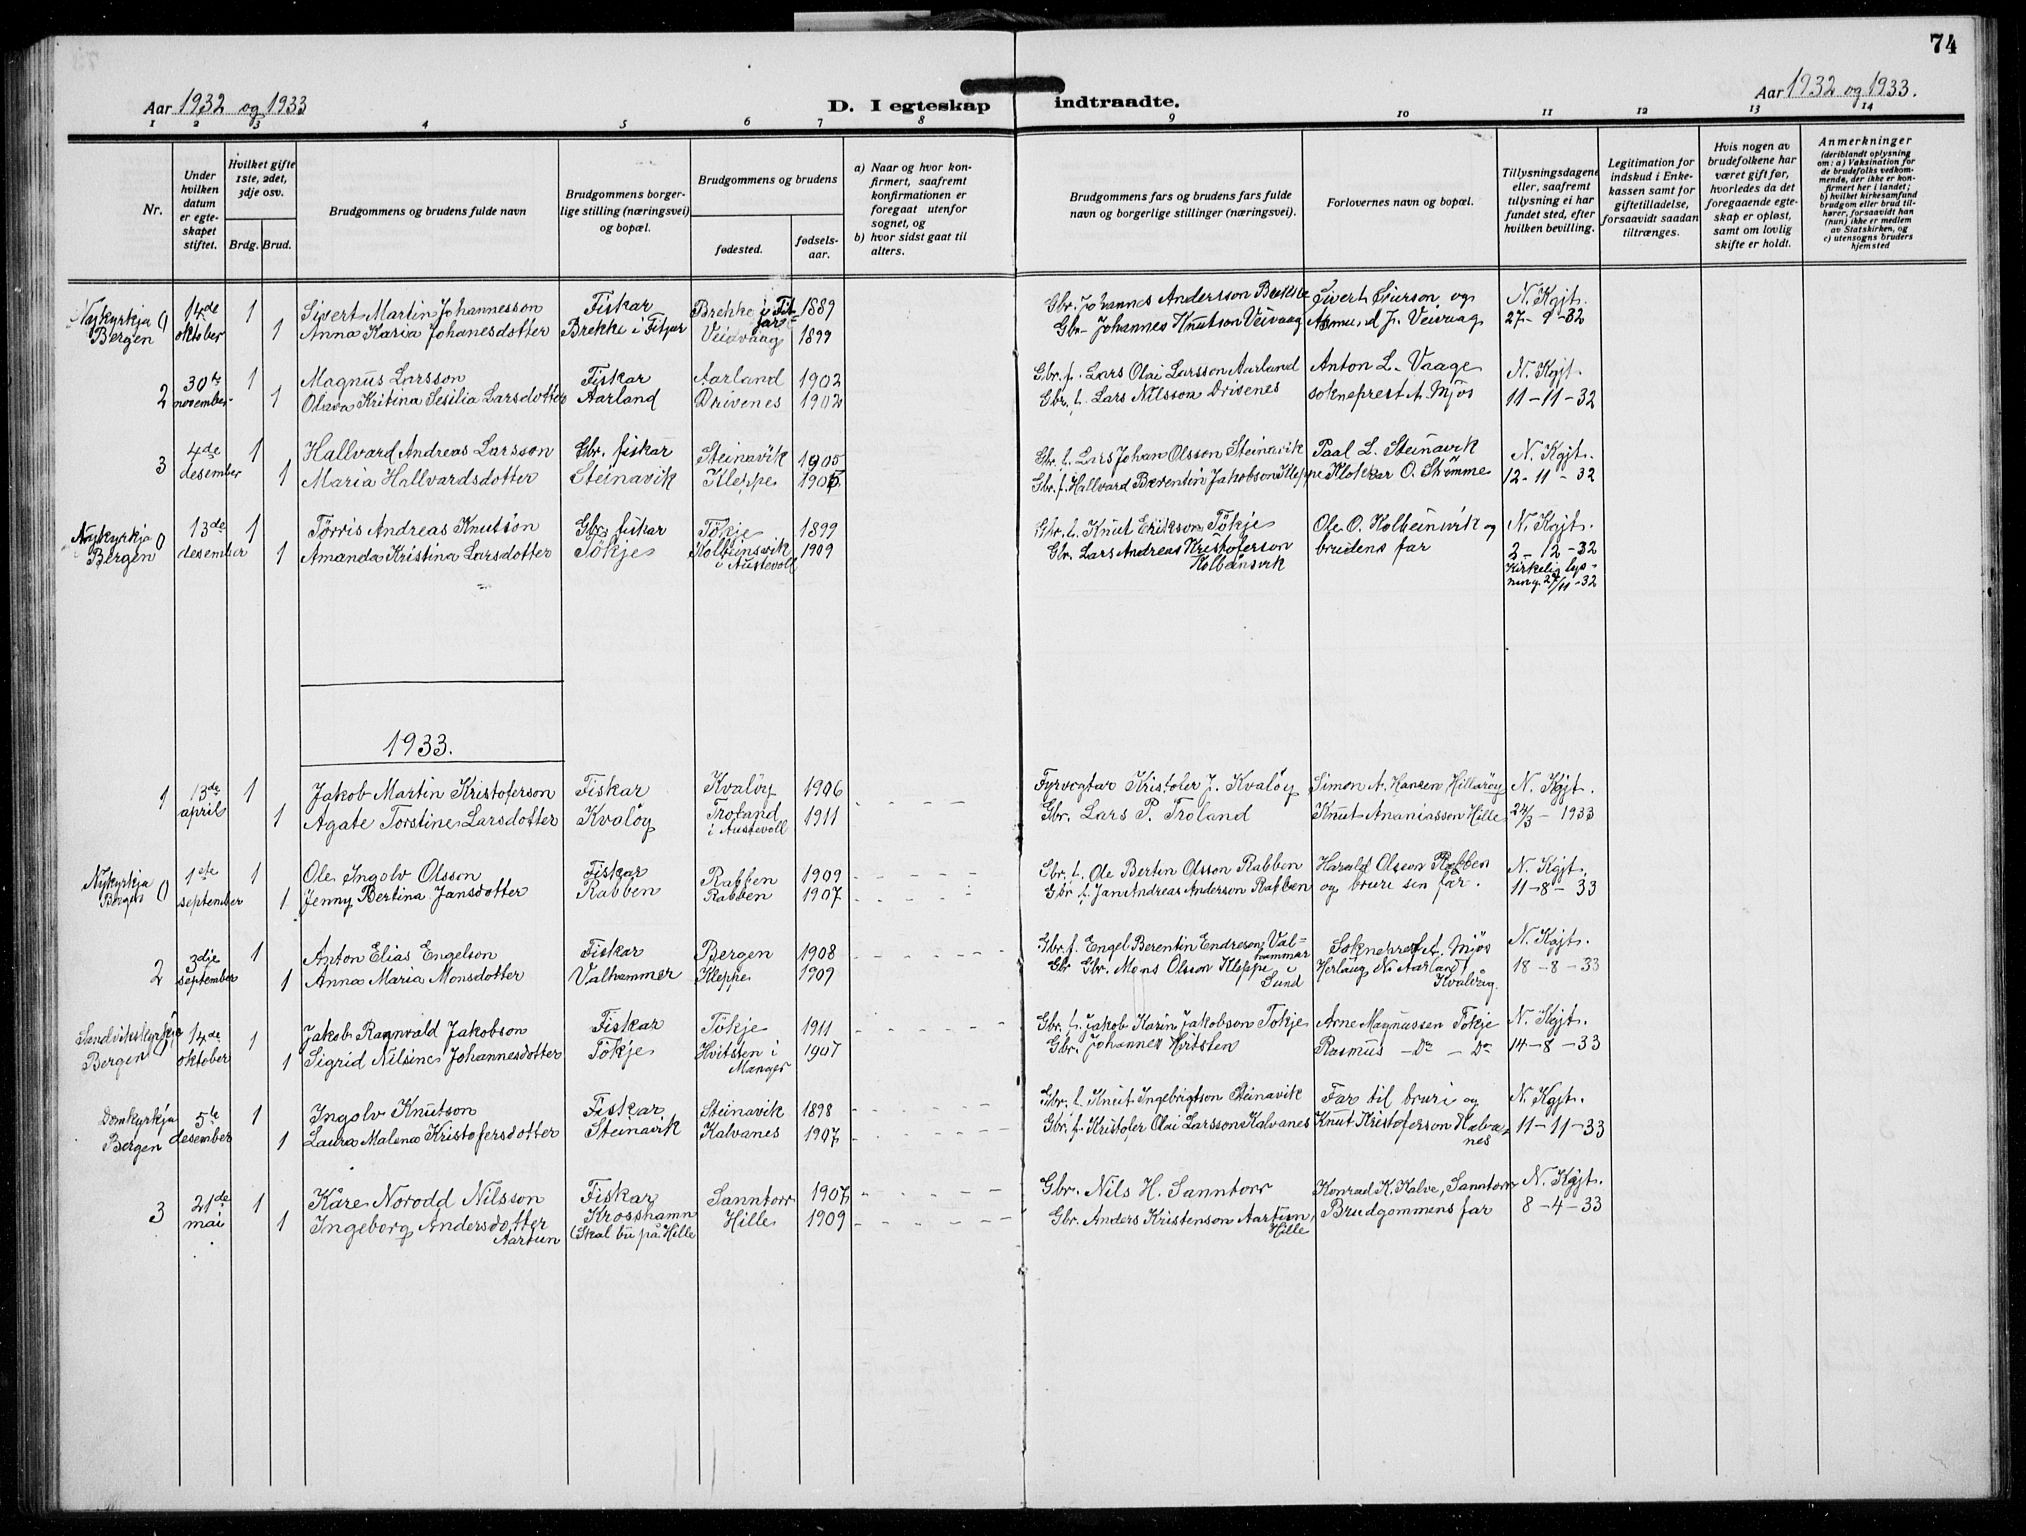 74
Aar 1932 og 1933
D. I egteskap indtraadte.
Aar 1932 og 1933.
1 2 3 4 5 6 7 8 9 10 11 12 13 14
Nr.
Under hvilken datum er egteskapet stiftet.
Hvilket gifte 1ste, 2det, 3dje osv.
Brdg. Brud.
Brudgommens og brudens fulde navn
Brudgommens borgerlige stilling (næringsvei) og bopæl.
Brudgommens og brudens
fødested.
fødselsaar.
a) Naar og hvor konfirmert, saafremt konfirmationen er foregaat utenfor sognet, og
b) hvor sidst gaat til alters.
Brudgommens fars og brudens fars fulde navn og borgerlige stillinger (næringsvei).
Forlovernes navn og bopæl.
Tillysningsdagene eller, saafremt tillysning ei har fundet sted, efter hvilken bevilling.
Legitimation for indskud i Enkekassen samt for giftetilladelse, forsaavidt saadan tiltrænges.
Hvis nogen av brudefolkene har været gift før, hvorledes da det foregaaende egteskap er opløst, samt om lovlig skifte er holdt.
Anmerkninger
(deriblandt oplysning om: a) Vaksination for de brudefolks vedkommende, der ikke er konfirmert her i landet; b) hvilket kirkesamfund brudgom eller brud tilhører, forsaavidt han (hun) ikke er medlem av Statskirken, og c) utensogns bruders hjemsted
Nykyrkja 0 14de 1 Sivert Martin Johannesson Fiskar Brekke i Fitjar 1889 Gbr. Johannes Andersson Brekke Sivert Siverson og N. Kgjt.
Bergen oktober 1 Anna Karia Johanesdotter Brekke i Fitjar Veivaag 1899 Gbr Johannes Knutson Veivaag Asmund J. Veivaag 27-9-32
2 30te 1 Magnus Larsson Fiskar Aarland 1902 Gbr. f. Lars Olai Larsson Aarland Anton L. Vaage N. Kgjt.
november 1 Olava Kritina Sesilia Larsdotter Aarland Drivenes 1902 Gbr. f. Lars Nilsson Drivenes sokneprest A. Mjøs 11-11-32
3 4de 1 Hallvard Andreas Larsson Gbr. fiskar Steinavik 1905 Gbr. f. Lars Johan Olsson Steinavik Paal L. Steinavik N. Kgjt.
desember 1 Maria Hallvardsdotter Steinavik Kleppe 1905 Gbr. f. Hallvard Berentin Jakobson Kleppe Klokkar O. Strømme 12-11-32
Nykyrkja 0 13de 1 Tørris Andreas Knutson Gbr. fiskar Tökje 1899 Gbr. f. Knut Erikson Tökje Ole O. Kolbeinsvik og N. Kgjt.
Bergen desember 1 Amanda Kristina Larsdotter Tökje Kolbeinsvik i Austevoll 1909 Gbr. Lars Andreas Kristoferson Kolbeinsvik brudens far 2-12-32
Kirkelig lysning 27/11-32
1933.
1 13de 1 Jakob Martin Kristoferson Fiskar Kvalöy 1906 Fyrvogtar Kristofer J. Kvalöy Simon A. Hansen Hillaröy N. Kgjt.
april 1 Agate Torstine Larsdotter Kvalöy Troland i Austevoll 1911 Gbr. Lars P. Troland Knut Ananiassen Hille 24/3-1933
Nykyrkja 0 1ste 1 Ole Ingolv Olsson Fiskar Rabben 1909 Gbr. f. Ole Bertin Olsson Rabben Harald Olsson Rabben N. Kgjt.
Bergen september 1 Jenny Bertina Jansdotter Rabben Rabben 1907 Gbr. f. Jan Andreas Anderson Rabben og bruri sin far. 11-8-33
2 3dje 1 Anton Elias Engelson Fiskar Bergen 1908 Gbr. f. Engel Berentin Endreson Valhammar Sokneprest A. Mjøs N. Kgjt.
september 1 Anna Maria Monsdotter Valhammer Kleppe 1909 Gbr Gbr. Mons Olsson Kleppe i Sund Herlaug N. Aarland Kvalvåg. 18-8-33
Sandvikskyrkja 0 14de 1 Jakob Ragnvald Jakobson Fiskar Tökje 1911 Gbr. f. Jakob Karin Jakobson Tokje Arne Magnussen Tökje N. Kgjt.
Bergen oktober 1 Sigrid Nilsine Johannesdotter Tökje Hvitsten i Manger 1907 Gbr. Johannes Hvitsten Rasmus Do Do 14-8-33
Domkyrkja 5te 1 Ingolv Knutson Fiskar Steinavik 1898 Gbr. f. Knut Ingebrigtson Steinavik Far til bruri og N. Kgjt.
Bergen desember 1 Laura Malena Kristofersdotter Steinavik Kalvanes 1907 Gbr. f. Kristofer Olai Larsson Kalvanes Knut Kristoferson Kalvanes 11-11-33
3 21de 1 Kåre Norodd Nilsson Fiskar Sanntorv 1907 Gbr. Nils H. Sanntorv Konrad K. Kalve, Sanntorv N. Kgjt.
mai 1 Ingeborg Andersdotter Aartun Krosshamn (Skal bu på Hille Hille 1909 Gbr. Anders Kristenson Aartun, Hille Brudgommens far 8-4-33